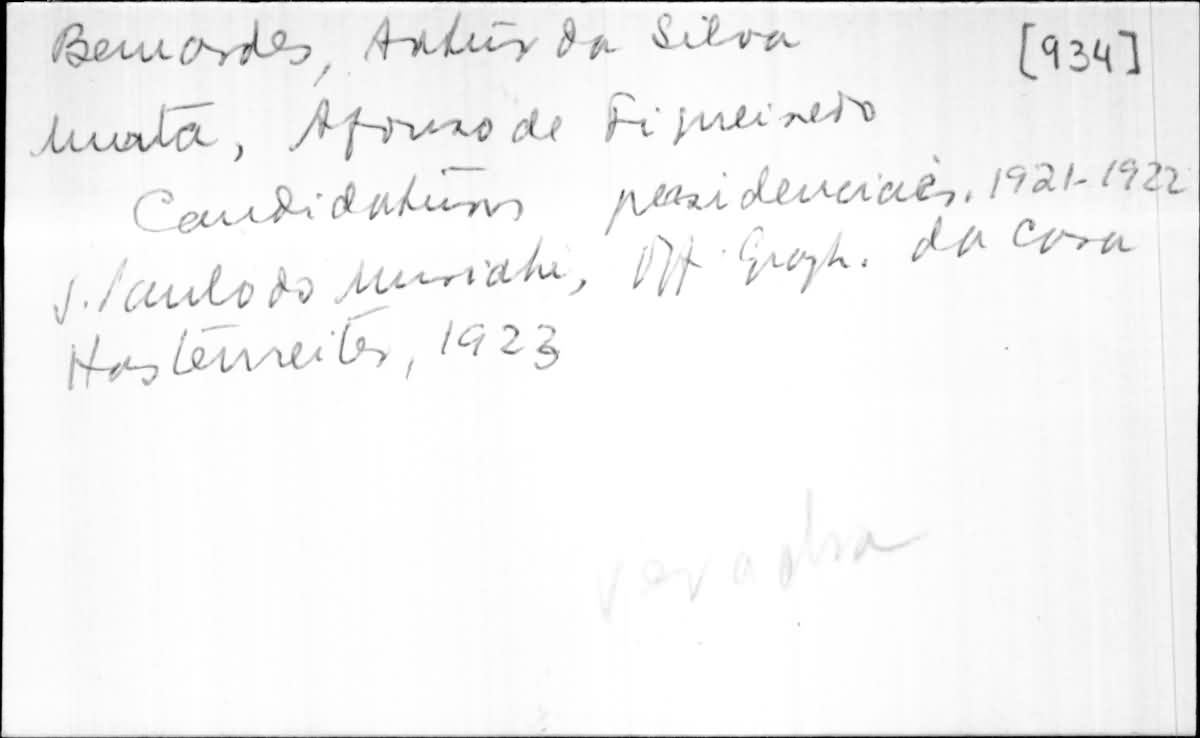 Bernardes, Artur da Silva [934]
Mata, Afonso de Figueiredo
Candidaturas presidenciaes. 1921-1922
S. Paulo do Muriahe, Off. Graph. da Casa
Hastenreiter, 1923
ver a obra